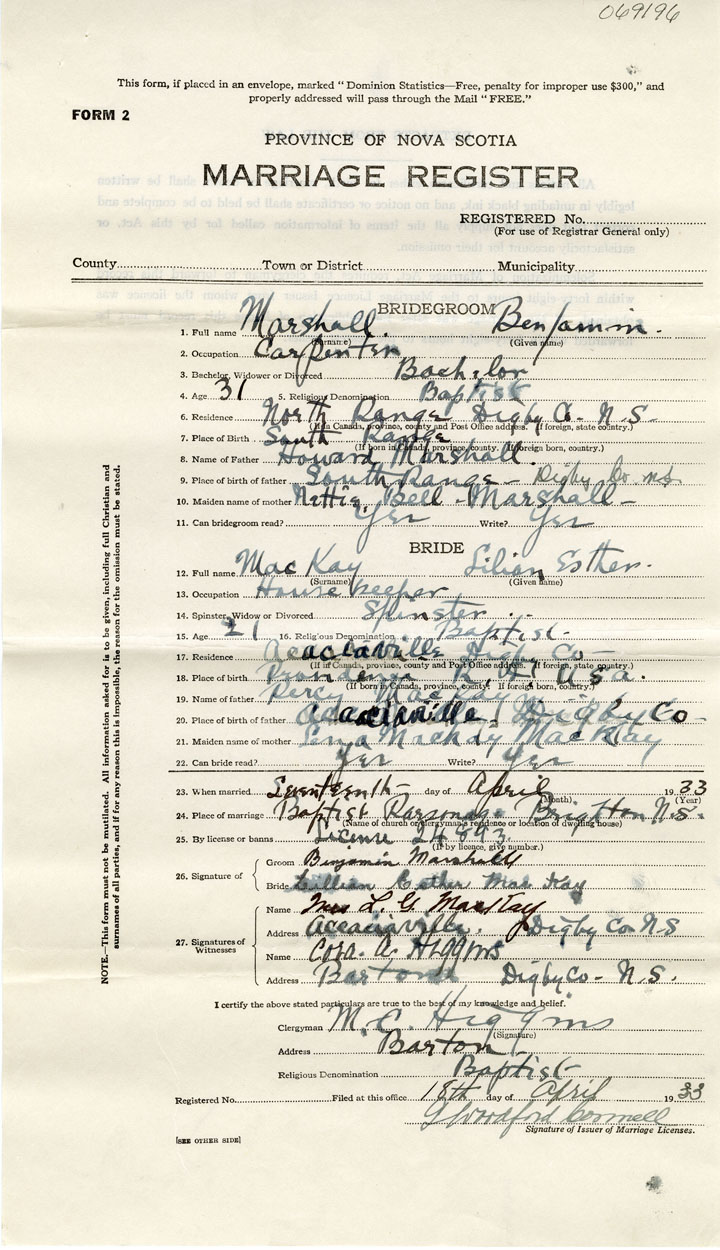 069196
This form, if placed in an envelope, marked "Dominion Statistics—Free, penalty for improper use $300," and
properly addressed will pass through the Mail "FREE."
FORM 2
PROVINCE OF NOVA SCOTIA
MARRIAGE REGISTER
REGISTERED No.
(For use of Registrar General only)
County Town or District Municipality
BRIDEGROOM
1. Full name Marshall Benjamin.
(Surname) (Given name)
2. Occupation Carpenter
3. Bachelor, Widower or Divorced Bachelor
4. Age 31 5. Religious Denomination Baptist
6. Residence North Range Digby Co. N.S.
(If in Canada, province, county and Post Office address. If foreign, state country.)
7. Place of Birth South Range
(If born in Canada, province, county. If foreign born, country.)
8. Name of Father Howard Marshall.
9. Place of birth of father South Range - Digby Co N.S.
10. Maiden name of mother Nettie Bell - Marshall -
11. Can bridegroom read? Yes Write? Yes
BRIDE
12. Full name MacKay Lilian Esther.
(Surname) (Given name)
13. Occupation Housekeeper
14. Spinster, Widow or Divorced Spinster
15. Age 21 16. Religious Denomination Baptist -
17. Residence Acaciaville Digby Co -
(If in Canada, province, county and Post Office address. If foreign, state country.)
18. Place of birth Providence R. I. U.S.a.
(If born in Canada, province, county. If foreign born, country.)
19. Name of father Percy
20. Place of birth of father Acaciaville, Digby Co -
21. Maiden name of mother Mackay MacKay
22. Can bride read? Yes Write? Yes
23. When married Seventeenth - day of April 1933
(Month) (Year)
24. Place of marriage Baptist Parsonage Brighton N.S.
(Name of church or clergyman's residence or location of dwelling house)
25. By license or banns License 24893
(If by licence, give number.)
26. Signature of Groom Benjamin Marshall
Bride Lillian Esther Mac Kay
27. Signatures of Witnesses
Name Mrs L. G. MacKay
Address Acaciaville. Digby Co N.S
Name Cora A. Higgins
Address Barton Digby Co - N.S.
I certify the above stated particulars are true to the best of my knowledge and belief.
Clergyman M. C. Higgins
(Signature)
Address Barton
Religious Denomination Baptist
Registered No. Filed at this office 18th day of April 1933
Signature of Issuer of Marriage Licenses.
[SEE OTHER SIDE]
NOTE.—This form must not be mutilated. All information asked for is to be given, including full Christian and
surnames of all parties, and if for any reason this is impossible, the reason for the omission must be stated.